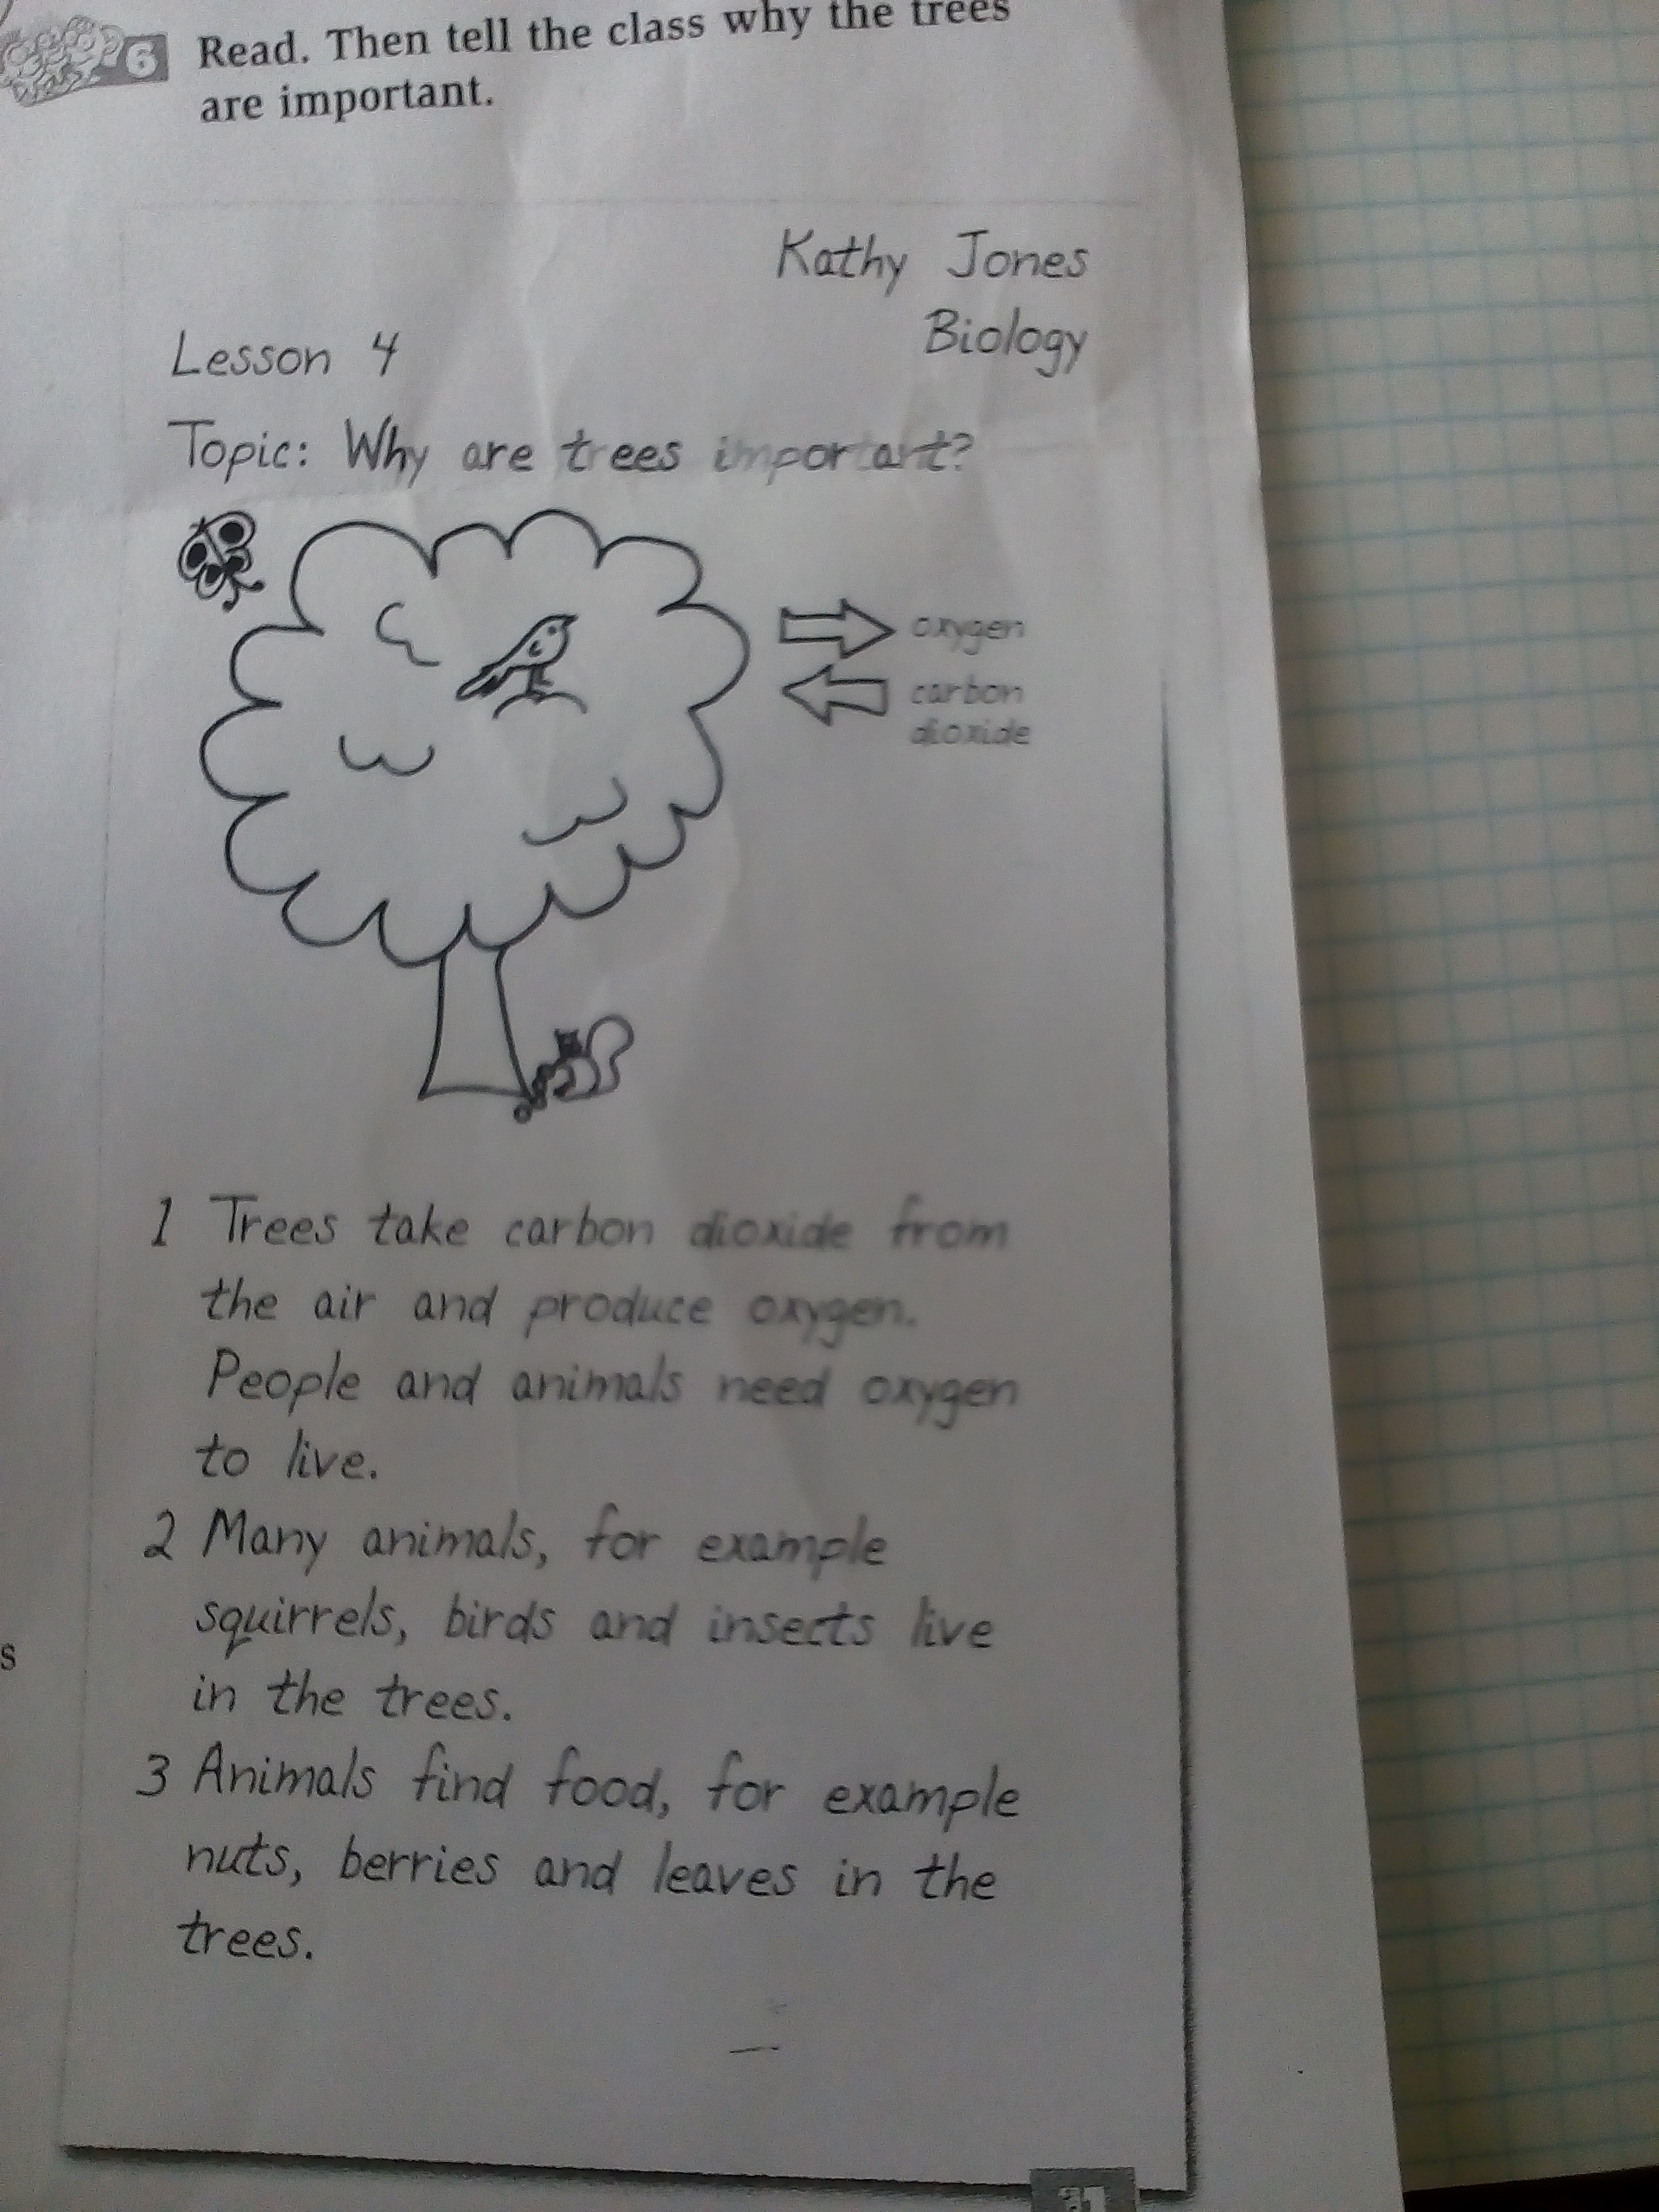 6 Read. Then tell the class why the trees
are important.
Kathy Jones
Biology
Lesson 4
Topic: Why are trees important?
oxygen
carbon
dioxide
1 Trees take carbon dioxide from
the air and produce oxygen.
People and animals need oxygen
to live.
2 Many animals, for example
squirrels, birds and insects live
in the trees.
3 Animals find food, for example
nuts, berries and leaves in the
trees.
s